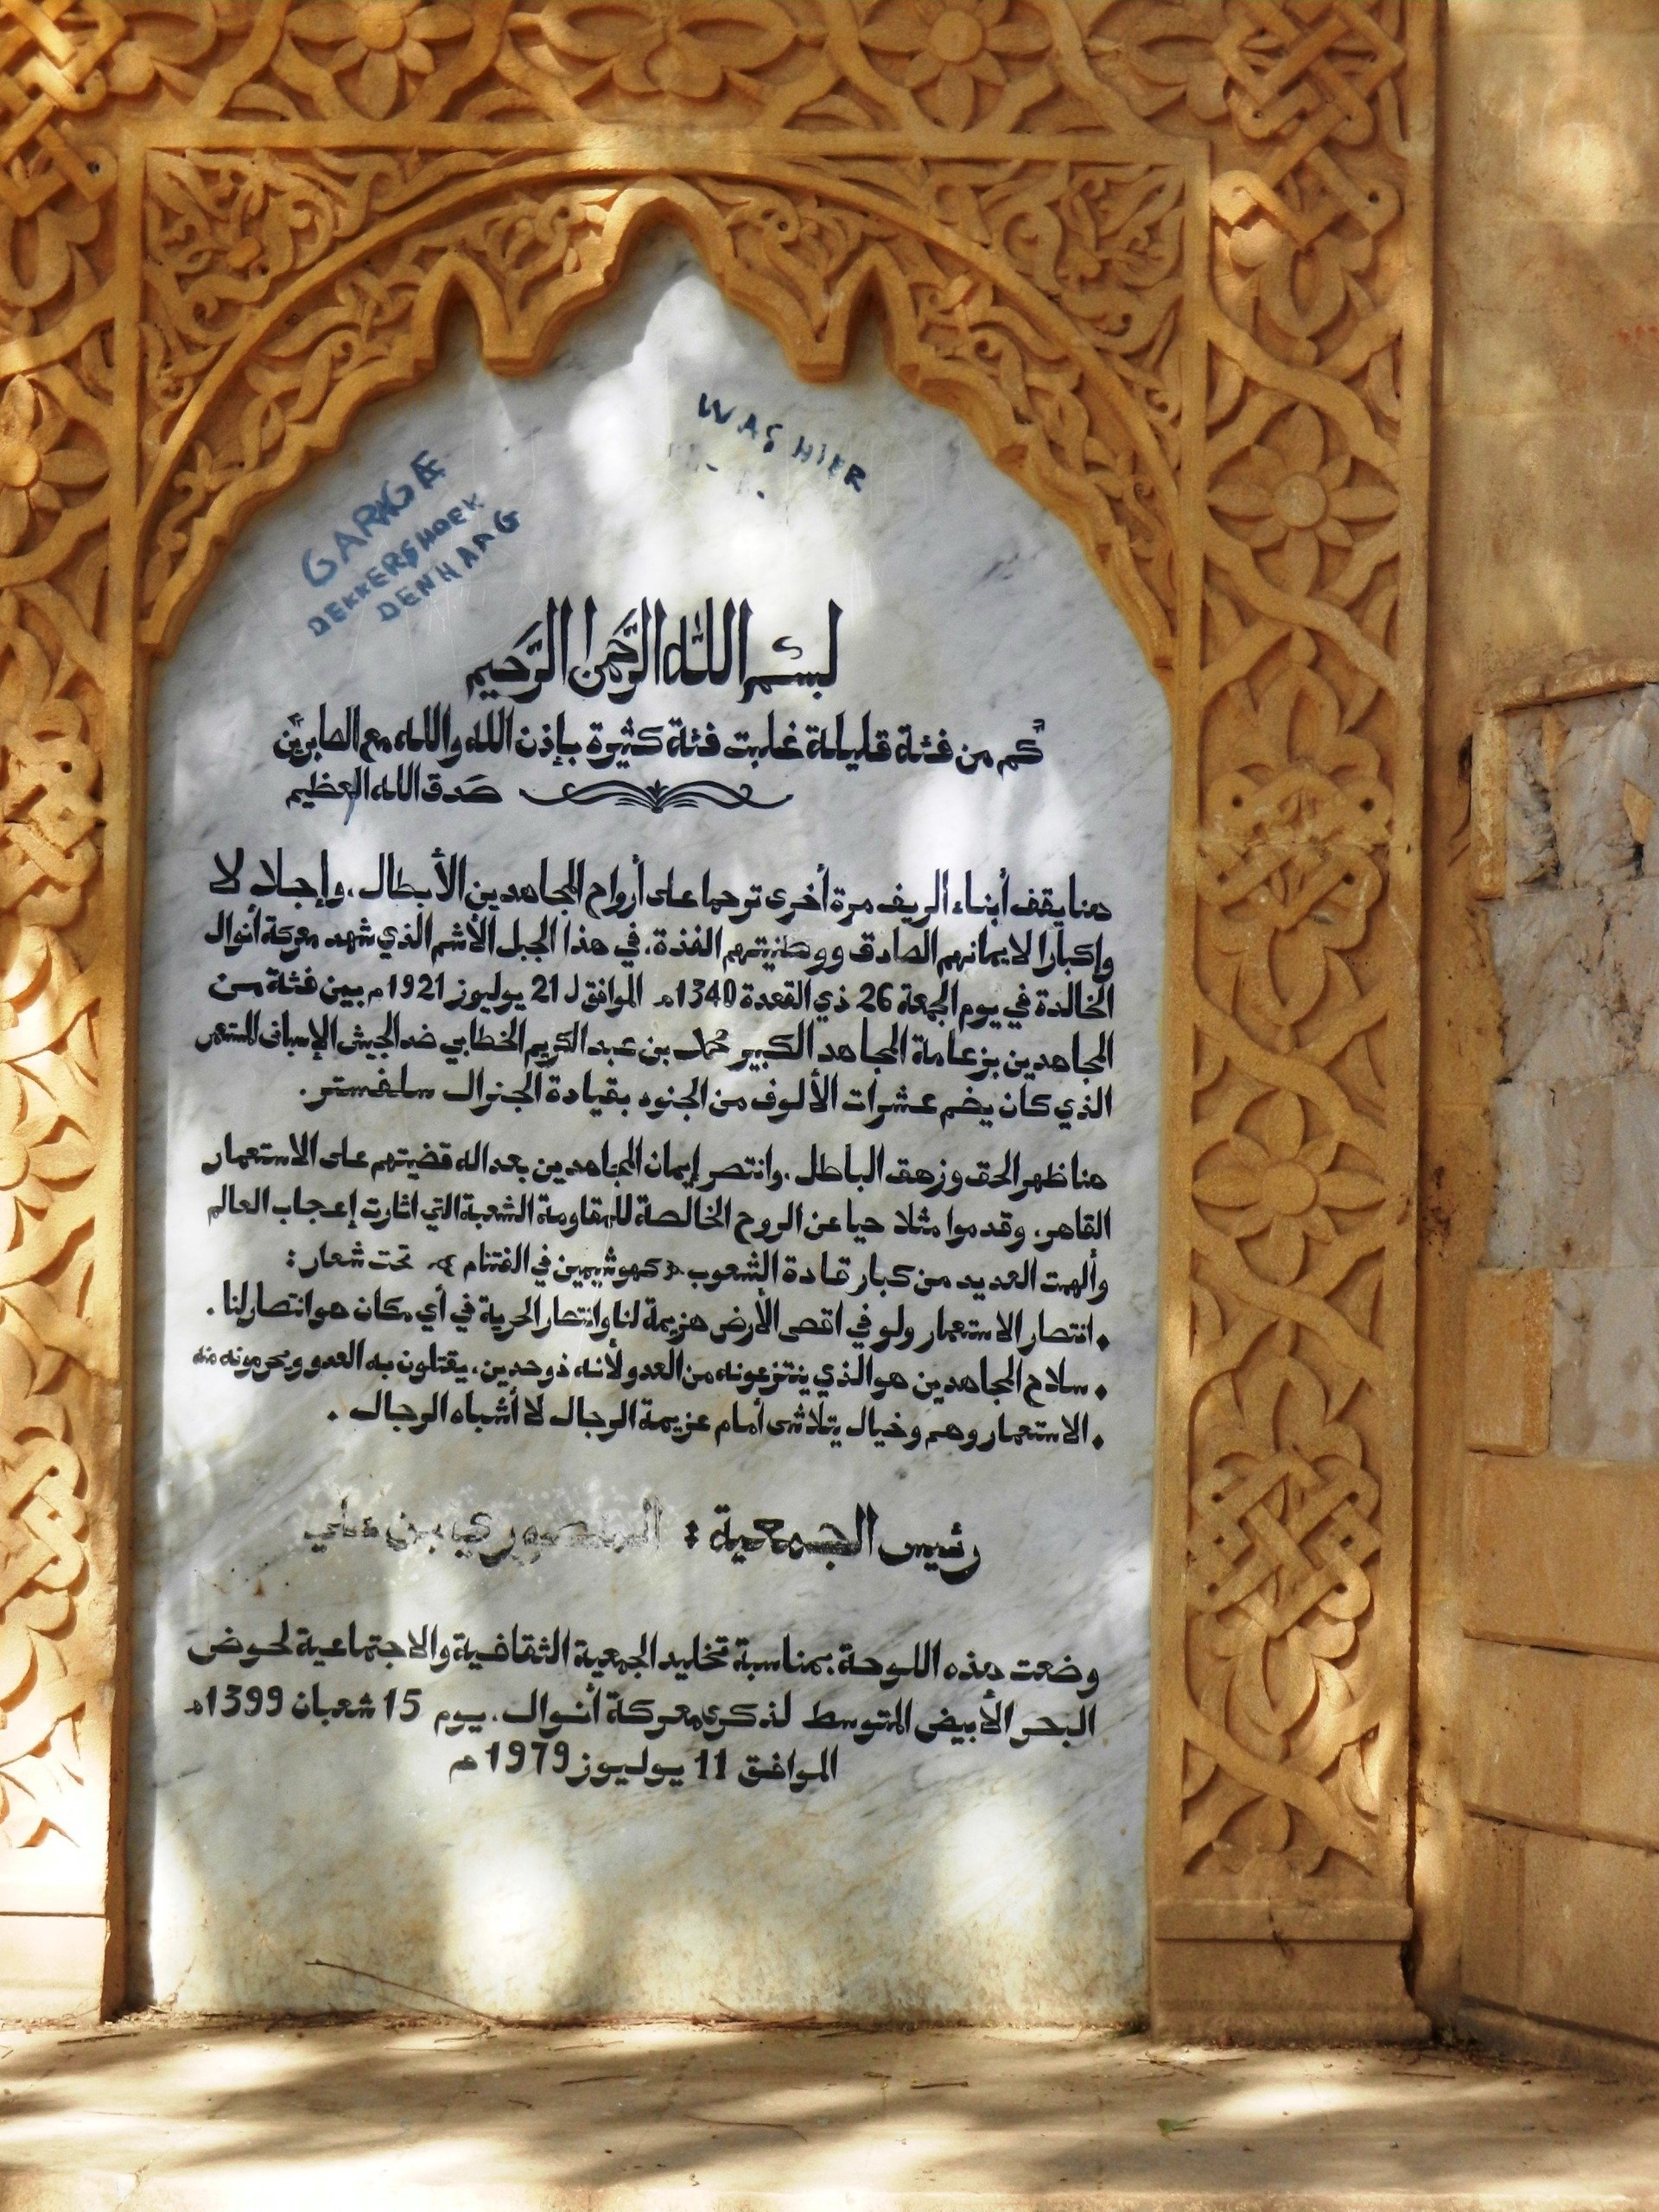 GARAGE
DEKKERSHOEK
DENHAAG
WAS HIER
بسم الله الرَّحمن الرَّحيم
"كم من فئة قليلة غلبت فئة كثيرة بإذن الله والله مع الصابرين"
صَدق الله العظيم
هنا يقف أبناء الريف مرة أخرى ترحما على أرواح المجاهدين الأبطال، وإجلالا
وإكبارا لايمانهم الصادق ووطنيتهم الفذة، في هذا الجبل الأشم الذي شهد معركة أنوال
الخالدة في يوم الجمعة 26 ذي القعدة 1340هـ الموافق ل 21 يوليوز 1921م بين فئة من
المجاهدين بزعامة المجاهد الكبير محمد بن عبد الكريم الخطابي ضد الجيش الإسباني المستعمر
الذي كان يضم عشرات الألوف من الجنود بقيادة الجنرال سلفستر.
هنا ظهر الحق وزهق الباطل، وانتصر إيمان المجاهدين بعدالة قضيتهم على الاستعمار
القاهر، وقدموا مثلا حيا عن الروح الخالصة للمقاومة الشعبة التي اثارت إعجاب العالم
وألهمت العديد من كبار قادة الشعوب «كهوشيمين في الفتنام» تحت شعار:
• انتصار الاستعمار ولو في اقصى الأرض هزيمة لنا وانتصار الحرية في أي مكان هو انتصار لنا.
• سلاح المجاهدين هو الذي ينتزعونه من العدو لأنه ذو حدين، يقتلون به العدو ويحرمونه منه
• الاستعمار وهم وخيال يتلاشى أمام عزيمة الرجال لا أشباه الرجال.
رئيس الجمعية : المنصوري بن علي
وضعت هذه اللوحة بمناسبة تخليد الجمعية الثقافية والاجتماعية لحوض
البحر الأبيض المتوسط لذكرى معركة أنوال، يوم 15 شعبان 1399هـ
الموافق 11 يوليوز 1979م